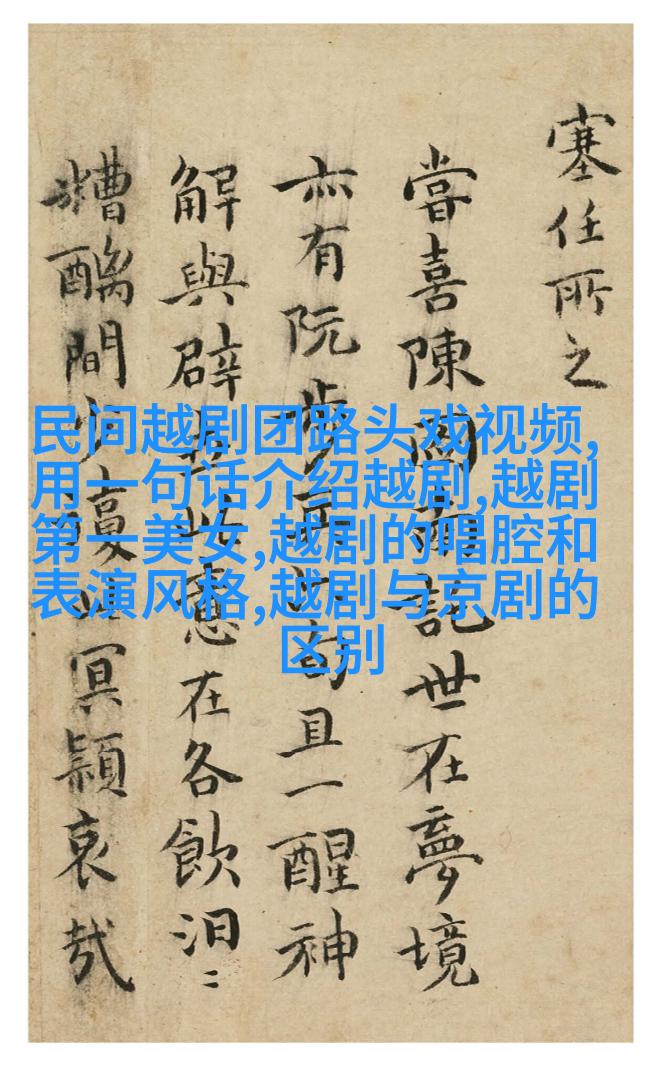 塞任所之
嘗喜陳圖南詑世在夢境
亦有阮步兵旬且一醒神
解與辟世以意在各飲汩〻
糟醨間少冥穎哀哉
民间越剧团路头戏视频,
用一句话介绍越剧,越剧
第一美女,越剧的唱腔和
表演风格,越剧与京剧的
区别